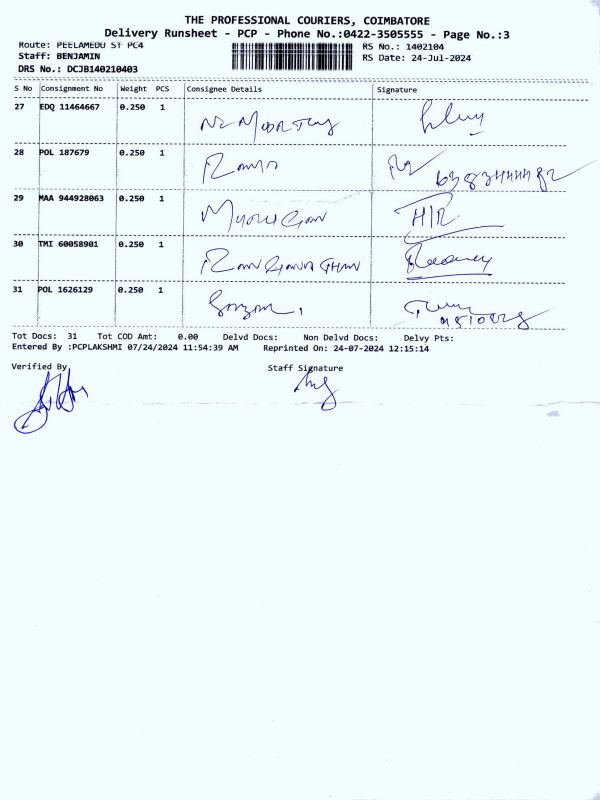 THE PROFESSIONAL COURIERS, COIMBATORE
Delivery Runsheet - PCP - Phone No.:0422-3505555 - Page No.:3
Route: PEELAMEDU ST PC4
RS No.: 1402104
Staff: BENJAMIN
RS Date: 24-Jul-2024
DRS No.: DCJB140210403
S No Consignment No Weight PCS Consignee Details Signature
27 EDQ 11464667 0.250 1
28 POL 187679 0.250 1 Rama
29 MAA 944928063 0.250 1 Murugan H/R
30 TMI 60058901 0.250 1 Ranganathan
31 POL 1626129 0.250 1
Tot Docs: 31 Tot COD Amt: 0.00 Delvd Docs: Non Delvd Docs: Delvy Pts:
Entered By :PCPLAKSHMI 07/24/2024 11:54:39 AM Reprinted On: 24-07-2024 12:15:14
Verified By Staff Signature